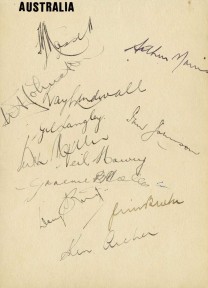 AUSTRALIA
Arthur Morris
Ray Lindwall
Gil Langley
Ian Johnson
Keith Miller
Neil Harvey
Graeme Hole
Jim Burke
Ken Archer